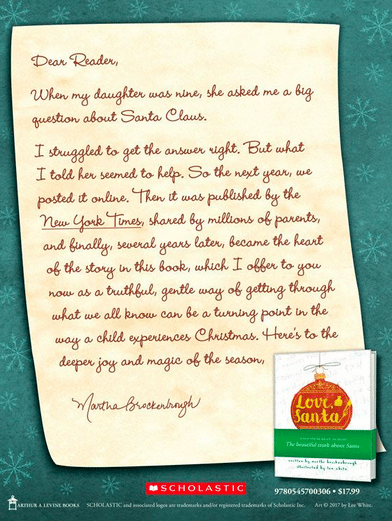 Dear Reader,
When my daughter was nine, she asked me a big
question about Santa Claus.
I struggled to get the answer right. But what
I told her seemed to help. So the next year, we
posted it online. Then it was published by the
New York Times, shared by millions of parents,
and finally, several years later, became the heart
of the story in this book, which I offer to you
now as a truthful, gentle way of getting through
what we all know can be a turning point in the
way a child experiences Christmas. Here's to the
deeper joy and magic of the season,
Martha Brockenbrough
Love,
Santa
The beautiful truth about Santa
written by martha brockenbrough
illustrated by lee white
SCHOLASTIC
9780545700306 • $17.99
ARTHUR A. LEVINE BOOKS
SCHOLASTIC and associated logos are trademarks and/or registered trademarks of Scholastic Inc.
Art © 2017 by Lee White.